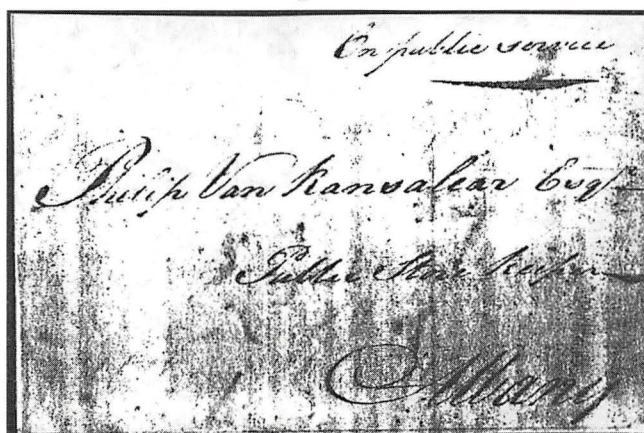 On public service
Philip Van Ransalear Esqr
Public Store keeper
Albany